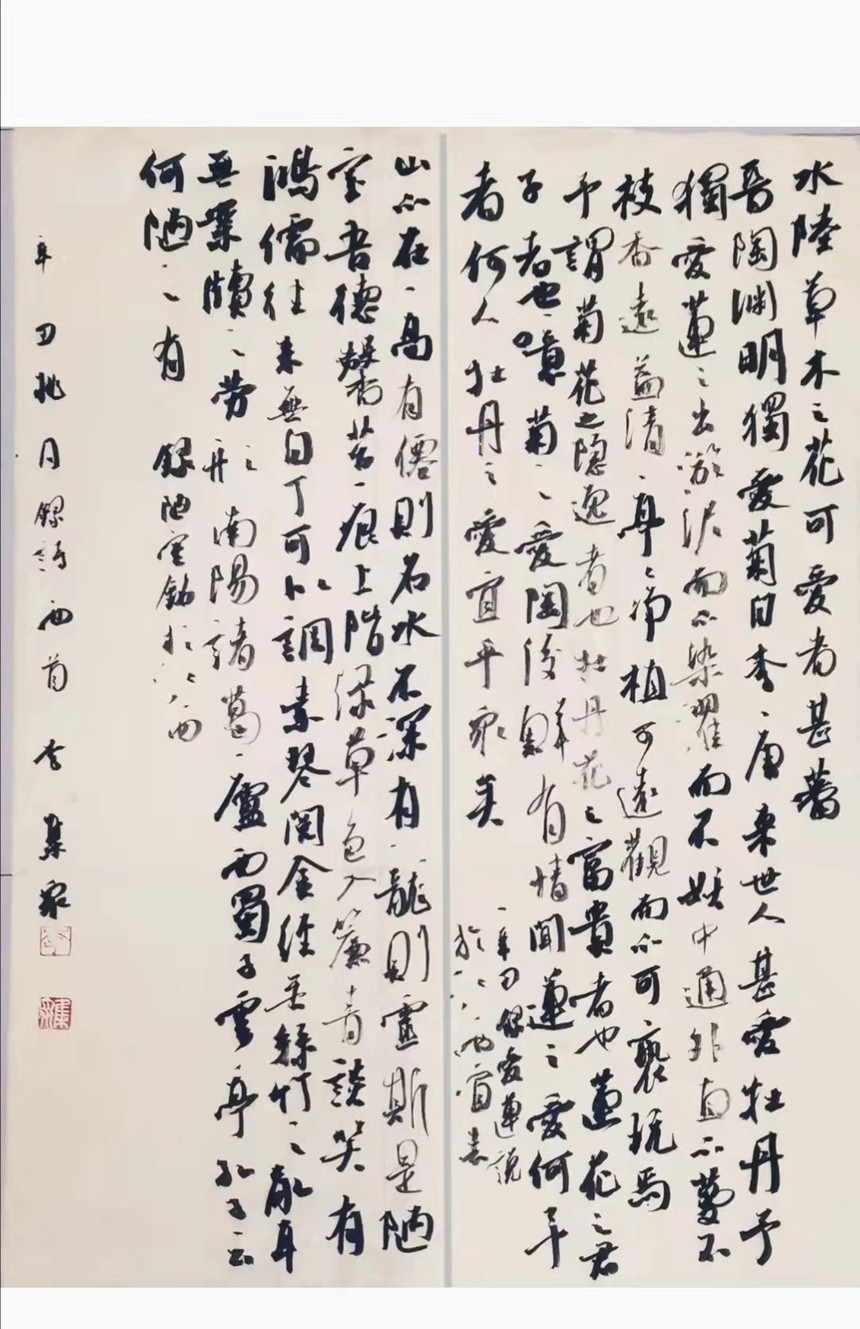 水陸草木之花可愛者甚蕃
晉陶渊明獨愛菊自李、唐来世人甚愛牡丹予
獨愛蓮之出淤泥而不染濯而不妖中通外直不蔓不
枝香遠益清、亭亭净植可遠觀而不可褻玩焉
予謂菊花之隐逸者也牡丹花之富貴者也蓮花之君
子者也噫菊之愛陶後鮮有情聞蓮之愛何
者何人牡丹之愛宜乎衆矣
辛丑録愛蓮説
於
山不在高有僊則名水不深有龍則靈斯是陋
室吾德馨苔痕上階緑草色入簾青談笑有
鴻儒往来無白丁可以調素琴閱金經無絲竹之亂耳
無案牘之勞形南陽諸葛廬西蜀子雲亭孔子云
何陋之有
録陋室銘於
辛丑桃月録詩两首李集